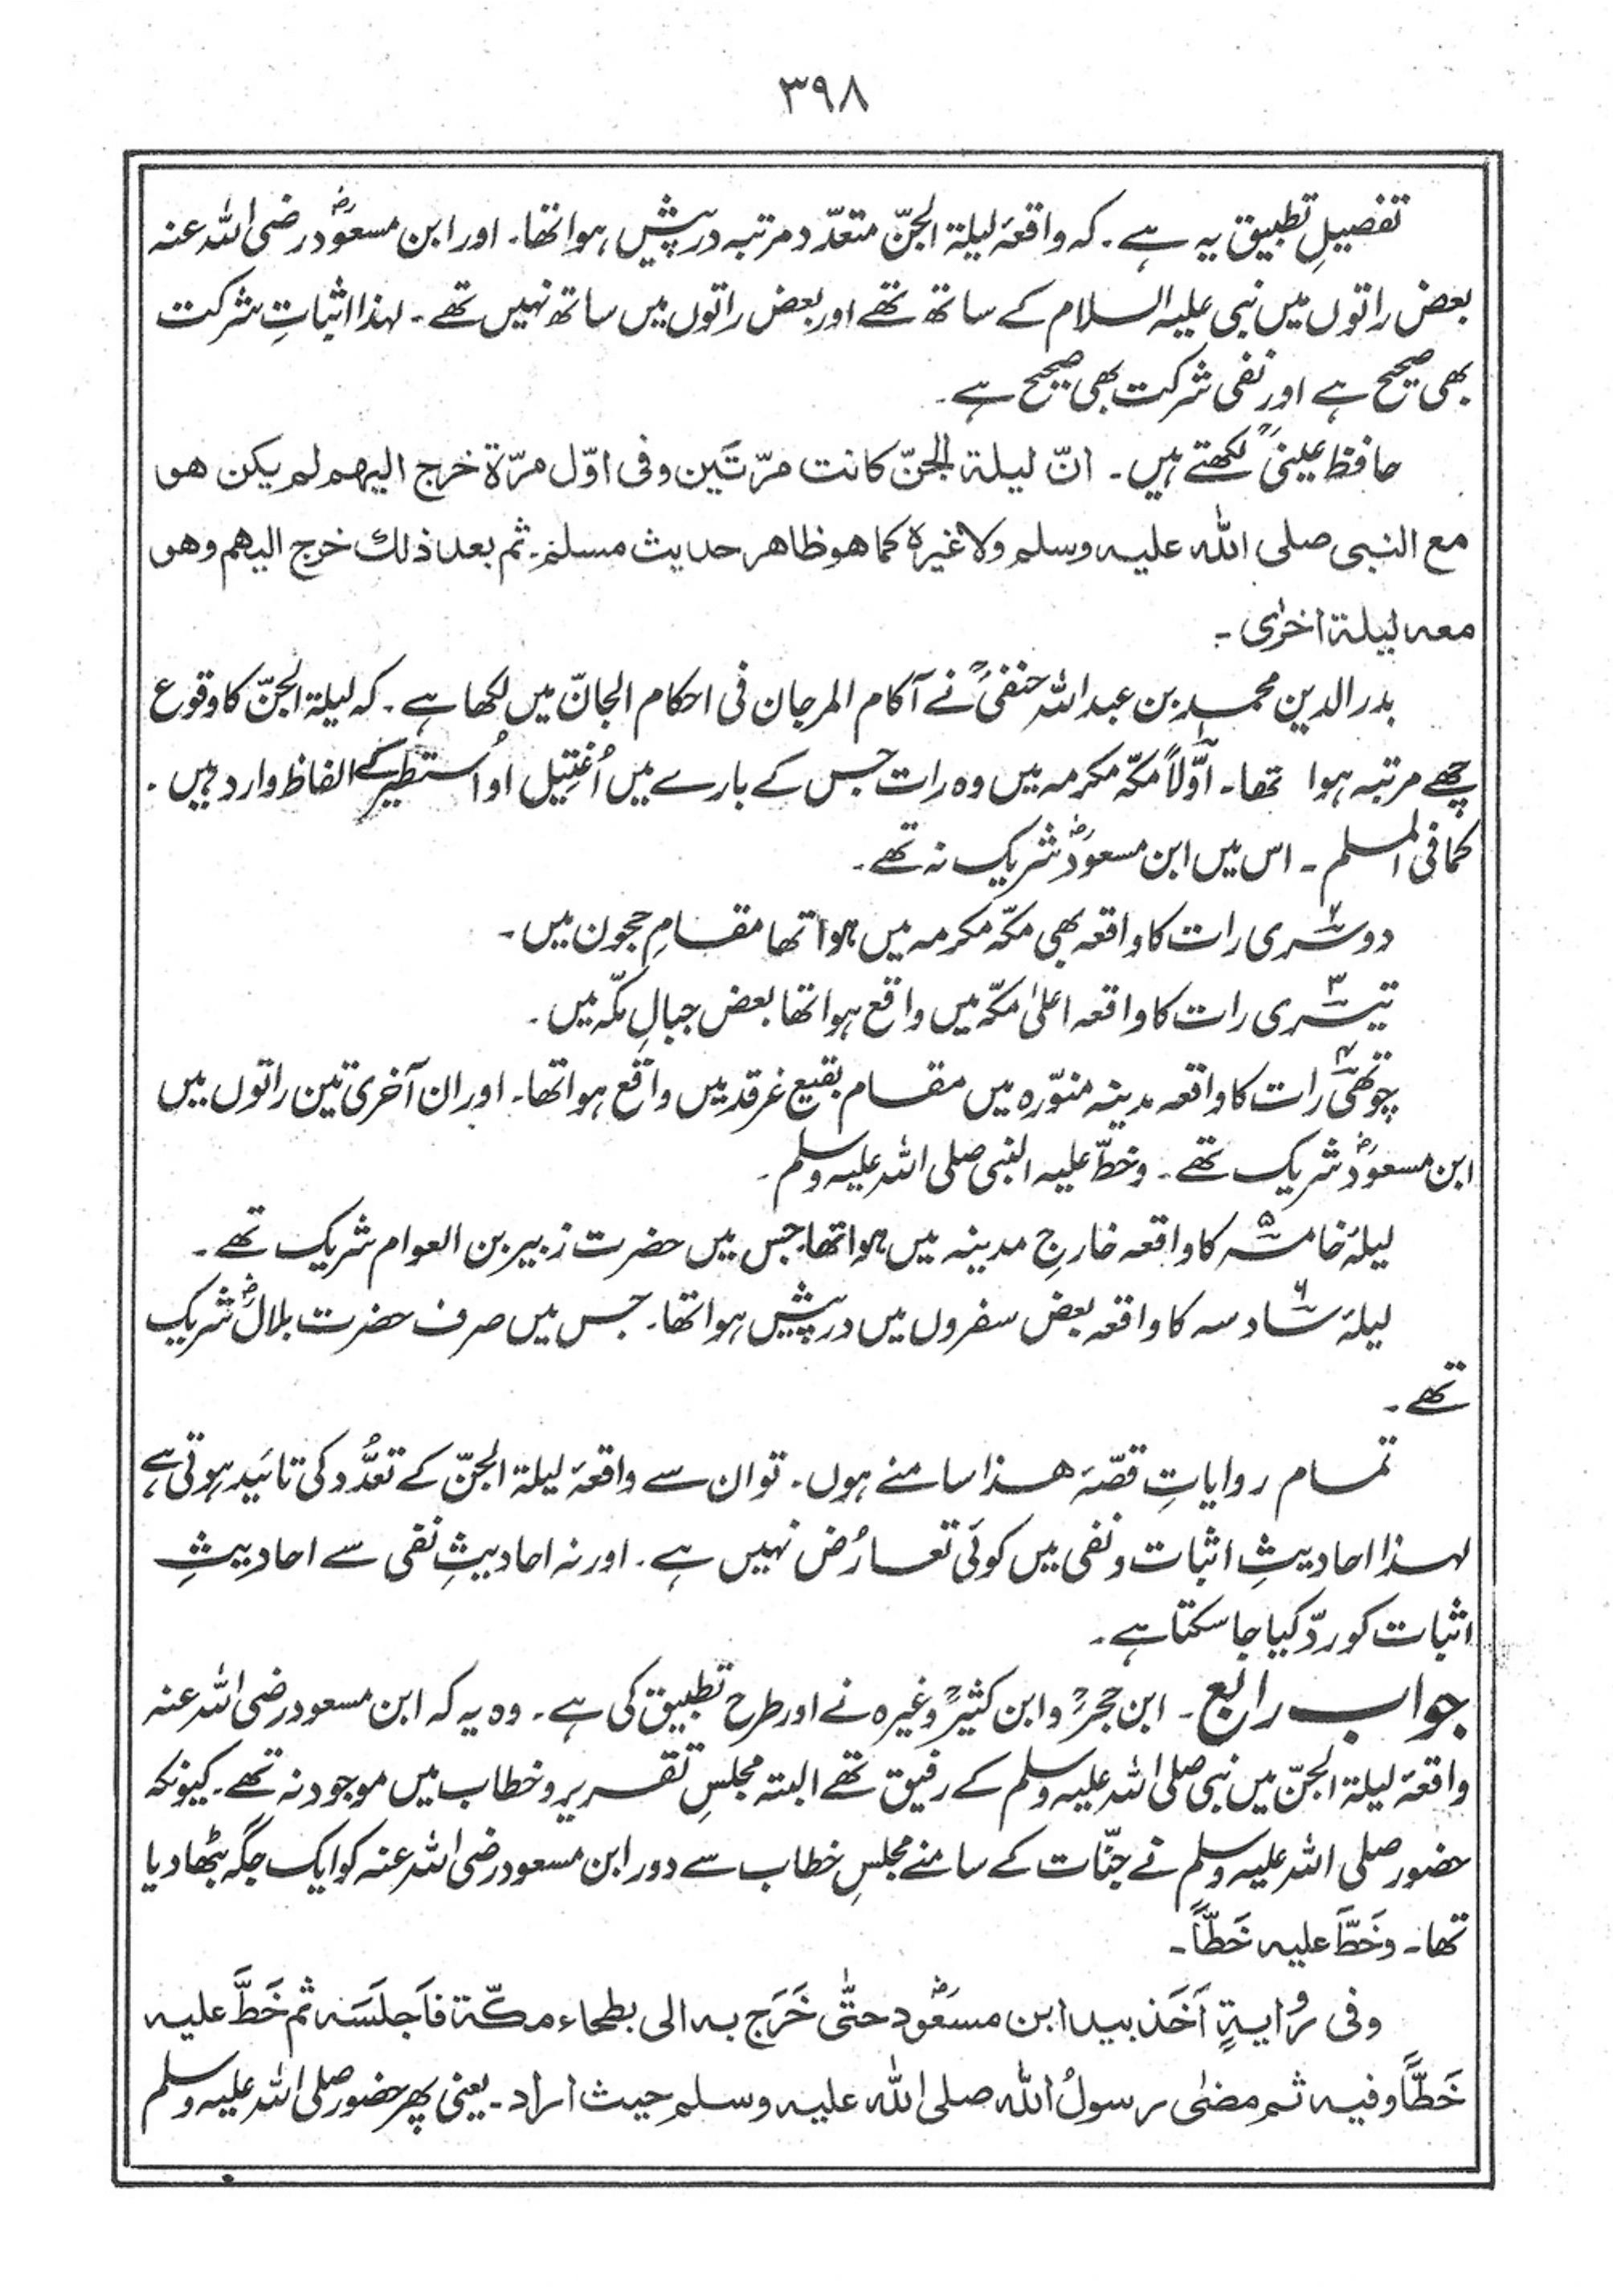 ۳۹۸
تفصیلِ تطبیق یہ ہے۔ کہ واقعۂ لیلۃ الجنّ متعدّد مرتبہ درپیش ہوا تھا۔ اور ابن مسعودؓ رضی اللہ عنہ
بعض راتوں میں نبی علیہ السلام کے ساتھ تھے اور بعض راتوں میں ساتھ نہیں تھے۔ لہذا اثباتِ شرکت
بھی صحیح ہے اور نفی شرکت بھی صحیح ہے۔
حافظ عینیؒ لکھتے ہیں۔ انّ لیلۃ الجنّ کانت مرّتَین وفی اوّل مرّۃ خرج الیھم لم یکن ھو
مع النبی صلی اللہ علیہ وسلم ولا غیرہ کما ھو ظاھر حدیث مسلم۔ ثم بعد ذلك خرج الیھم وھو
معہ لیلۃ اخرٰی۔
بدر الدین محمد بن عبد اللہ حنفیؒ نے آکام المرجان فی احکام الجانّ میں لکھا ہے۔ کہ لیلۃ الجنّ کا وقوع
چھے مرتبہ ہوا تھا۔ اوّلاً مکّہ مکرمہ میں وہ رات جس کے بارے میں اُغتِیل او اُستطیر کے الفاظ وارد ہیں۔
کما فی المسلم۔ اس میں ابن مسعودؓ شریک نہ تھے۔
دوسری۲ رات کا واقعہ بھی مکّہ مکرمہ میں ہوا تھا مقامِ حجون میں۔
تیسری۳ رات کا واقعہ اعلیٰ مکّہ میں واقع ہوا تھا بعض جبالِ مکّہ میں۔
چوتھی۴ رات کا واقعہ مدینہ منوّرہ میں مقام بقیع غرقد میں واقع ہوا تھا۔ اور ان آخری تین راتوں میں
ابن مسعودؓ شریک تھے۔ وخطّ علیہ النبی صلی اللہ علیہ وسلم۔
لیلۂ خامسہ۵ کا واقعہ خارجِ مدینہ میں ہوا تھا، جس میں حضرت زبیر بن العوام شریک تھے۔
لیلۂ سادسہ۶ کا واقعہ بعض سفروں میں درپیش ہوا تھا۔ جس میں صرف حضرت بلالؓ شریک
تھے۔
تمام روایاتِ قصّۂ ھذا سامنے ہوں۔ تو ان سے واقعۂ لیلۃ الجنّ کے تعدُّد کی تائید ہوتی ہے
لہذا احادیثِ اثبات و نفی میں کوئی تعارُض نہیں ہے۔ اور نہ احادیثِ نفی سے احادیثِ
اثبات کو ردّ کیا جا سکتا ہے۔
جواب رابع۔ ابن حجرؒ و ابن کثیرؒ وغیرہ نے اور طرح تطبیق کی ہے۔ وہ یہ کہ ابن مسعود رضی اللہ عنہ
واقعۂ لیلۃ الجنّ میں نبی صلی اللہ علیہ وسلم کے رفیق تھے البتہ مجلسِ تقریر و خطاب میں موجود نہ تھے۔ کیونکہ
حضور صلی اللہ علیہ وسلم نے جنّات کے سامنے مجلسِ خطاب سے دور ابن مسعود رضی اللہ عنہ کو ایک جگہ بٹھا دیا
تھا۔ وخَطَّ علیہ خَطّاً۔
وفی رُوایۃٍ اَخَذ بید ابن مسعودؓ حتّٰی خَرَج بہ الی بطحاء مکّۃ فاَجلَسَہ ثم خَطَّ علیہ
خَطّاً وفیہ ثم مضٰی رسولُ اللہ صلی اللہ علیہ وسلم حیث اراد۔ یعنی پھر حضور صلی اللہ علیہ وسلم